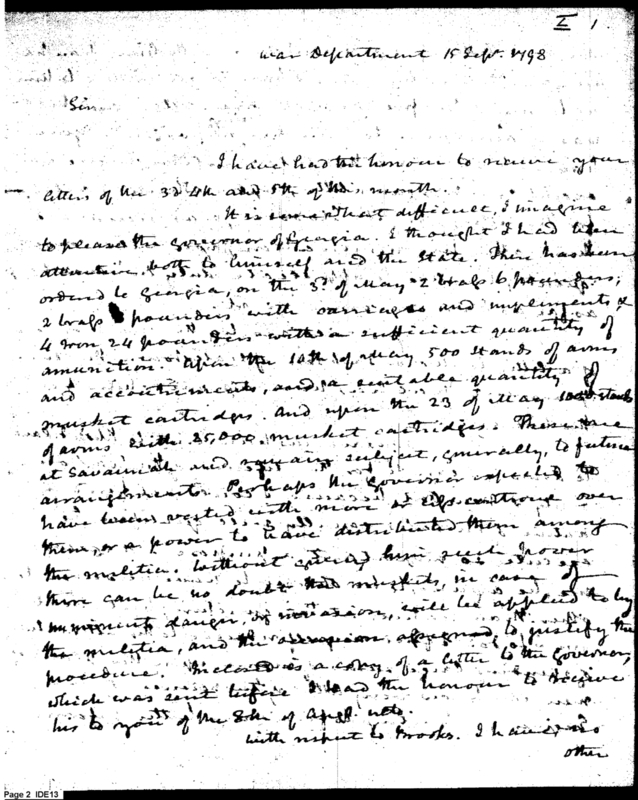 I 1.
War Department 15 Sepr. 1798
Sir
I have had the honour to receive your
letters of the 3d 4th and 5th of this month.
It is somewhat difficult, I imagine
to please the Governor of Georgia. I thought I had been
attentive, both to himself and the State. There has been
ordered to Georgia, on the 3d of May 2 brass 6 pounders,
2 brass pounders with carriages and implements &
4 iron 24 pounders with a sufficient quantity of
amunition. Upon the 10th of May 500 stands of arms
and accoutrements, and a suitable quantity of
musket cartridges. and upon the 23 of May stands
of arms with 25,000 musket cartridges. These are
at Savannah and remain subject, generally, to future
arrangement. Perhaps the Governor expected to
have been vested with more controul over
them, or a power to have distributed them among
the militia. Without giving him such power
there can be no doubt muskets, in case of
imminent danger, or invasion, will be applied to by
the militia, and the occasion to justify the
procedure. Inclosed is a copy of a letter to the Governor,
which was sent before I had the honour to receive
his to you of the of Augt. ulto.
With respect to Brooks. I have no
other
Page 2 IDE13